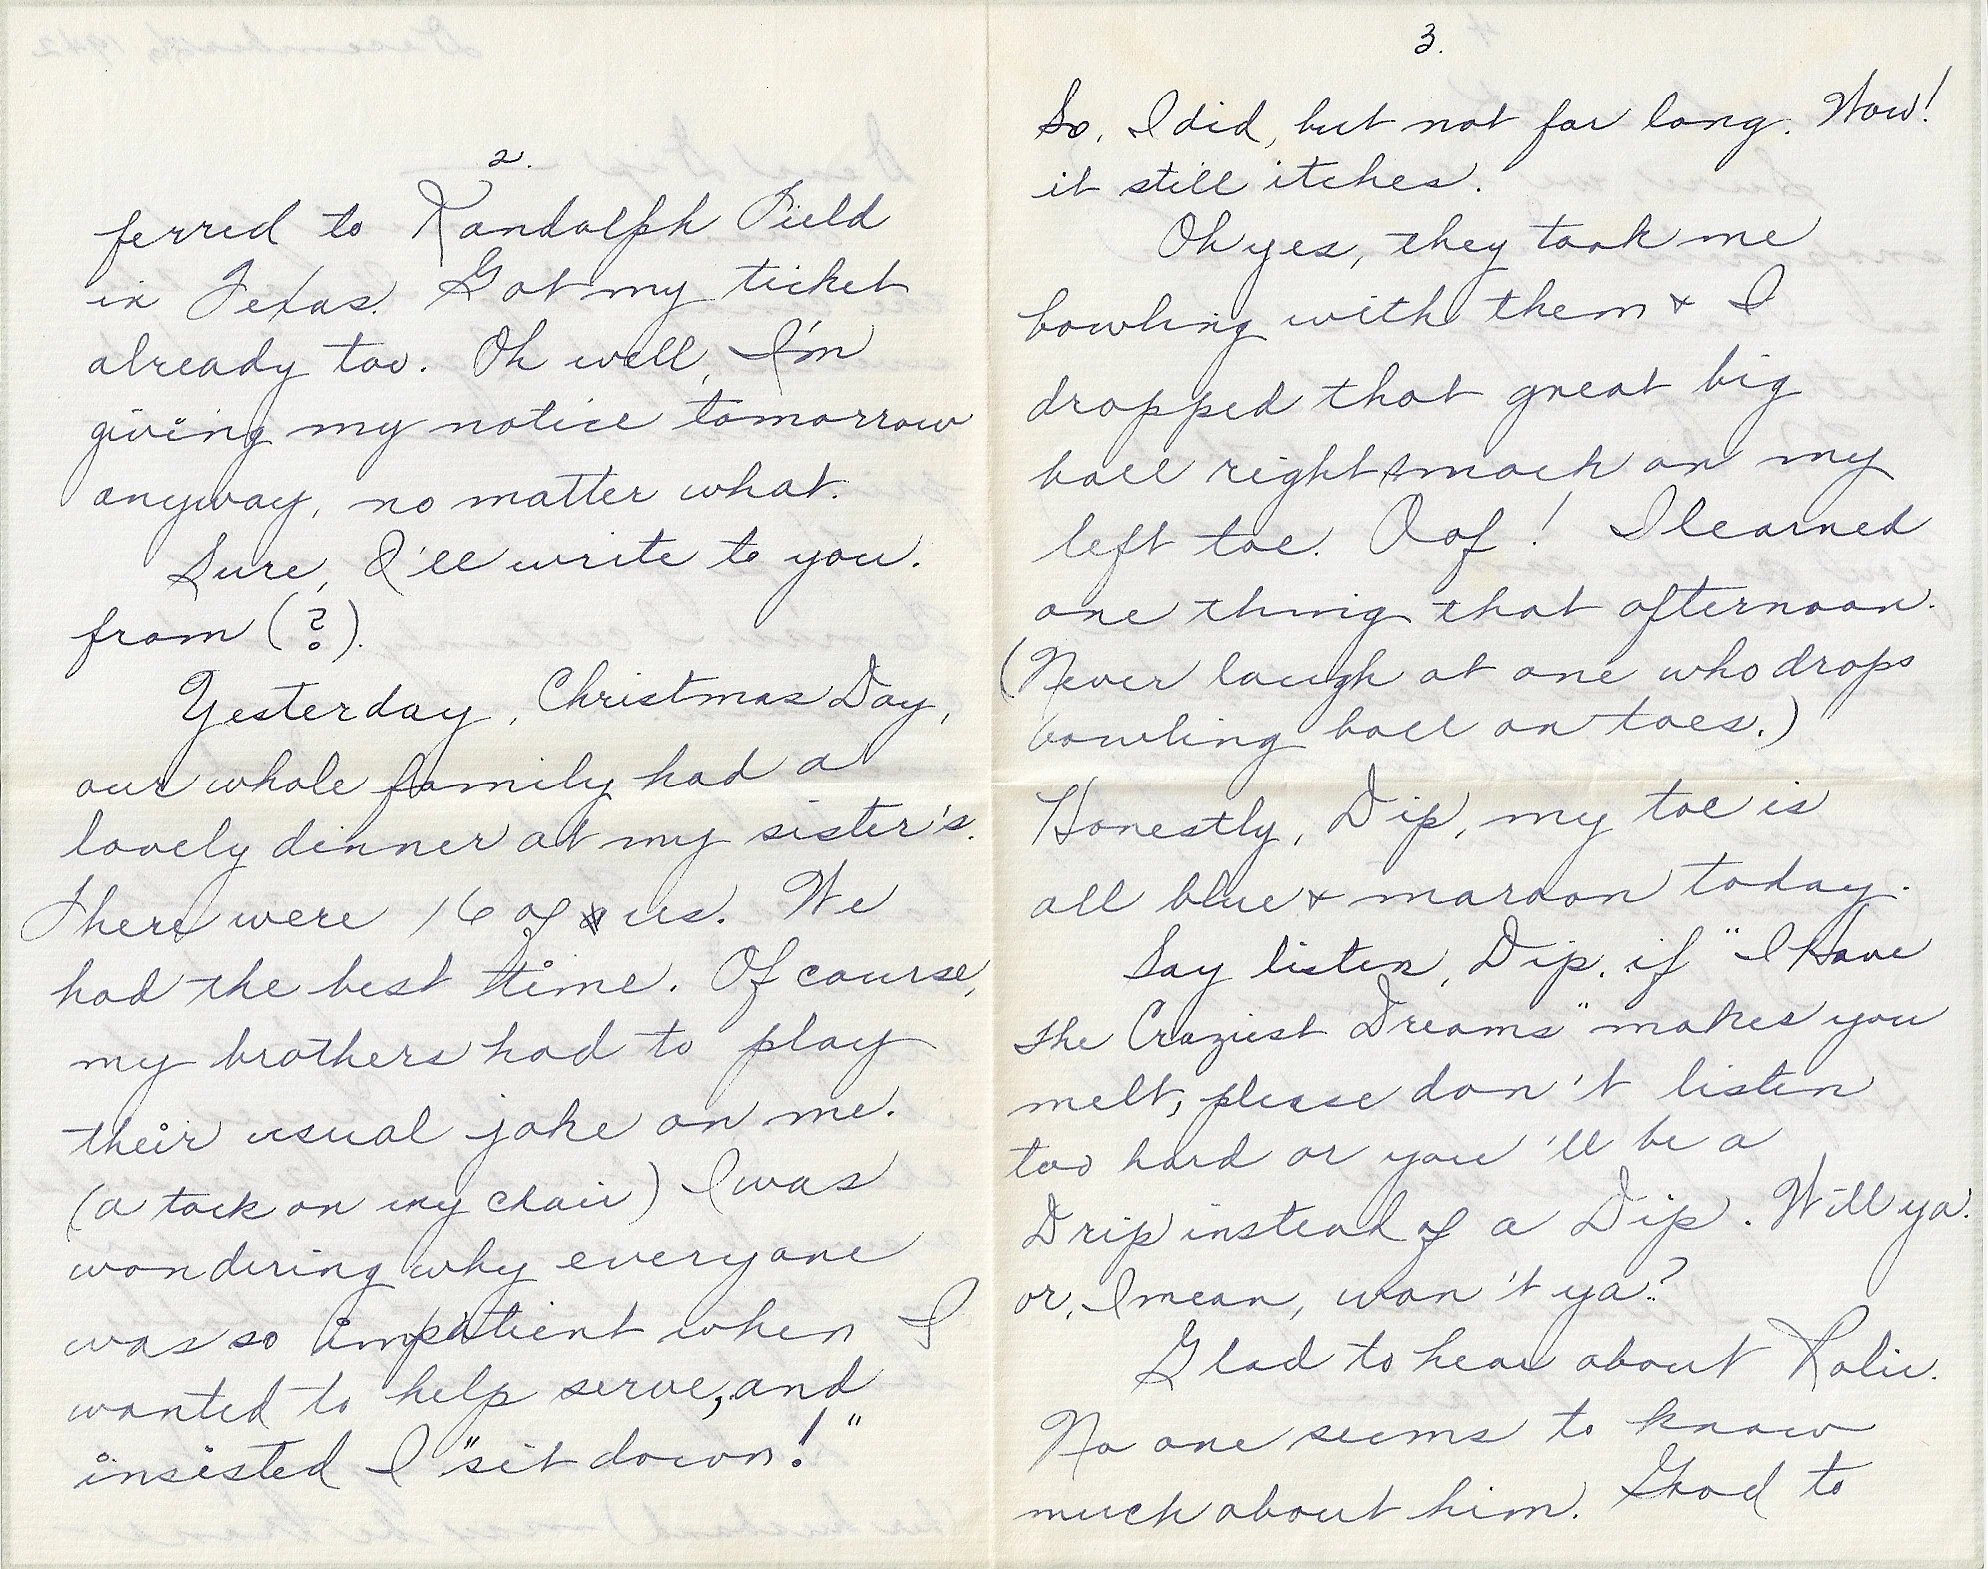 2.
ferred to Randolph Field
in Texas. Got my ticket
already too. Oh well, I'm
giving my notice tomorrow
anyway, no matter what.
Sure, I'll write to you.
from (?).
Yesterday, Christmas Day,
our whole family had a
lovely dinner at my sister's.
There were 16 of us. We
had the best time. Of course,
my brothers had to play
their usual joke on me.
(a tack on my chair) I was
wondering why everyone
was so impatient when I
wanted to help serve, and
insisted I "sit down!"
3.
So, I did, but not for long. Wow!
it still itches.
Oh yes, they took me
bowling with them & I
dropped that great big
ball right smack on my
left toe. Oof! I learned
one thing that afternoon.
(Never laugh at one who drops
bowling ball on toes.)
Honestly, Dip, my toe is
all blue & maroon today.
Say listen, Dip, if "I Have
the Craziest Dreams" makes you
melt, please don't listen
too hard or you'll be a
Drip instead of a Dip. Will ya.
or, I mean, won't ya?
Glad to hear about Rolie.
No one seems to know
much about him. Good to